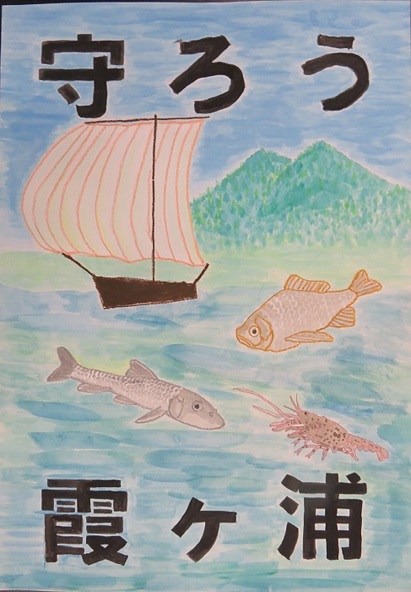 守ろう
霞ヶ浦